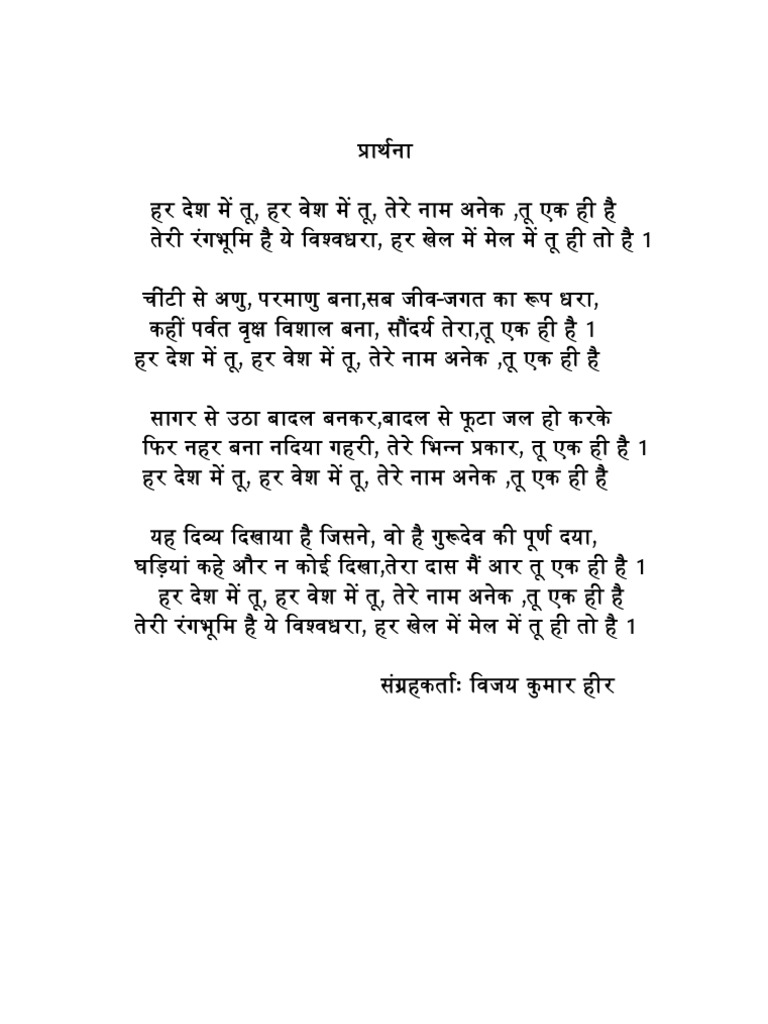 प्रार्थना
हर देश में तू, हर वेश में तू, तेरे नाम अनेक ,तू एक ही है
तेरी रंगभूमि है ये विश्वधरा, हर खेल में मेल में तू ही तो है 1
चींटी से अणु, परमाणु बना,सब जीव-जगत का रूप धरा,
कहीं पर्वत वृक्ष विशाल बना, सौंदर्य तेरा,तू एक ही है 1
हर देश में तू, हर वेश में तू, तेरे नाम अनेक ,तू एक ही है
सागर से उठा बादल बनकर,बादल से फूटा जल हो करके
फिर नहर बना नदिया गहरी, तेरे भिन्न प्रकार, तू एक ही है 1
हर देश में तू, हर वेश में तू, तेरे नाम अनेक ,तू एक ही है
यह दिव्य दिखाया है जिसने, वो है गुरूदेव की पूर्ण दया,
घड़ियां कहे और न कोई दिखा,तेरा दास मैं आर तू एक ही है 1
हर देश में तू, हर वेश में तू, तेरे नाम अनेक ,तू एक ही है
तेरी रंगभूमि है ये विश्वधरा, हर खेल में मेल में तू ही तो है 1
संग्रहकर्ताः विजय कुमार हीर